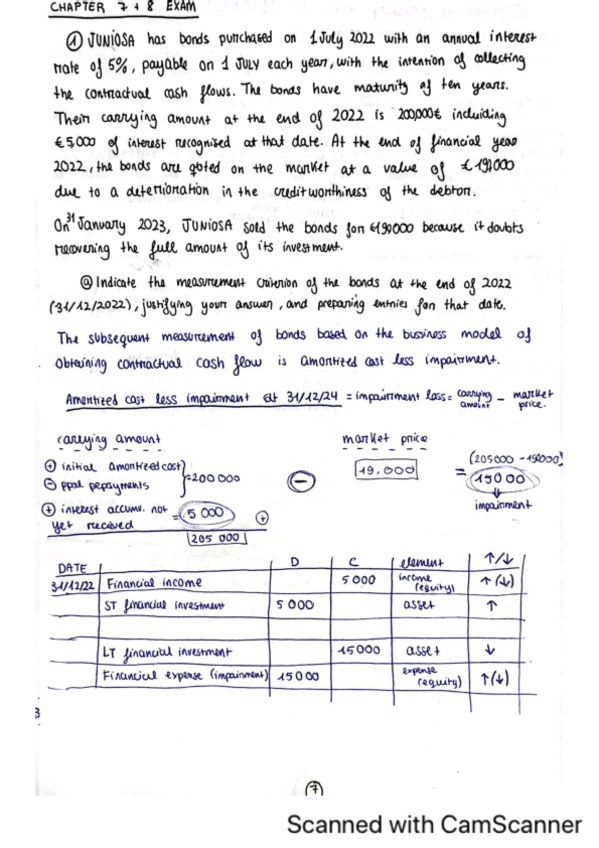 CHAPTER 7 + 8 EXAM
① JUNIOSA has bonds purchased on 1 July 2022 with an annual interest
rate of 5%, payable on 1 JULY each year, with the intention of collecting
the contractual cash flows. The bonds have maturity of ten years.
Their carrying amount at the end of 2022 is 200,000€ including
€5000 of interest recognised at that date. At the end of financial year
2022, the bonds are qoted on the market at a value of £190000
due to a deterioration in the creditworthiness of the debtor.
On 31 January 2023, JUNIOSA sold the bonds for €190000 because it doubts
recovering the full amount of its investment.
@ Indicate the measurement criterion of the bonds at the end of 2022
(31/12/2022), justifying your answer, and preparing entries for that date.
The subsequent measurement of bonds based on the bussiness model of
obtaining contractual cash flow is amortized cost less impairment.
Amortized cost less impairment at 31/12/24 = impairment loss = carrying amount - market price.
carrying amount market price
(205000 - 190000)
⊕ initial amortized cost
⊖ ppal repayments =200 000 ⊖ 19.000 = 15000
impairment
⊕ interest accum. not
yet received = 5 000 ⊕
205 000
DATE D C element ↑/↓
31/12/22 Financial income 5 000 income (equity) ↑(↓)
ST financial investment 5 000 asset ↑
LT financial investment 15000 asset ↓
Financial expense (impairment) 15000 expense (equity) ↑(↓)
3
(7)
Scanned with CamScanner